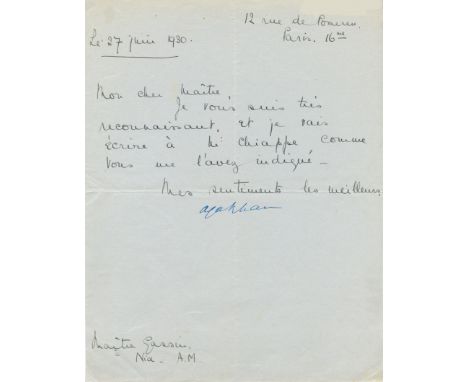 12 rue de Pomereu
Paris. 16me
Le 27 juin 1930.
Mon cher Maître,
Je vous suis très
reconnaissant, et je vais
écrire à Mr Chiappe comme
vous me l'avez indiqué —
Mes sentiments les meilleurs
Aga Khan
Maître Gassin
Nice - A.M.